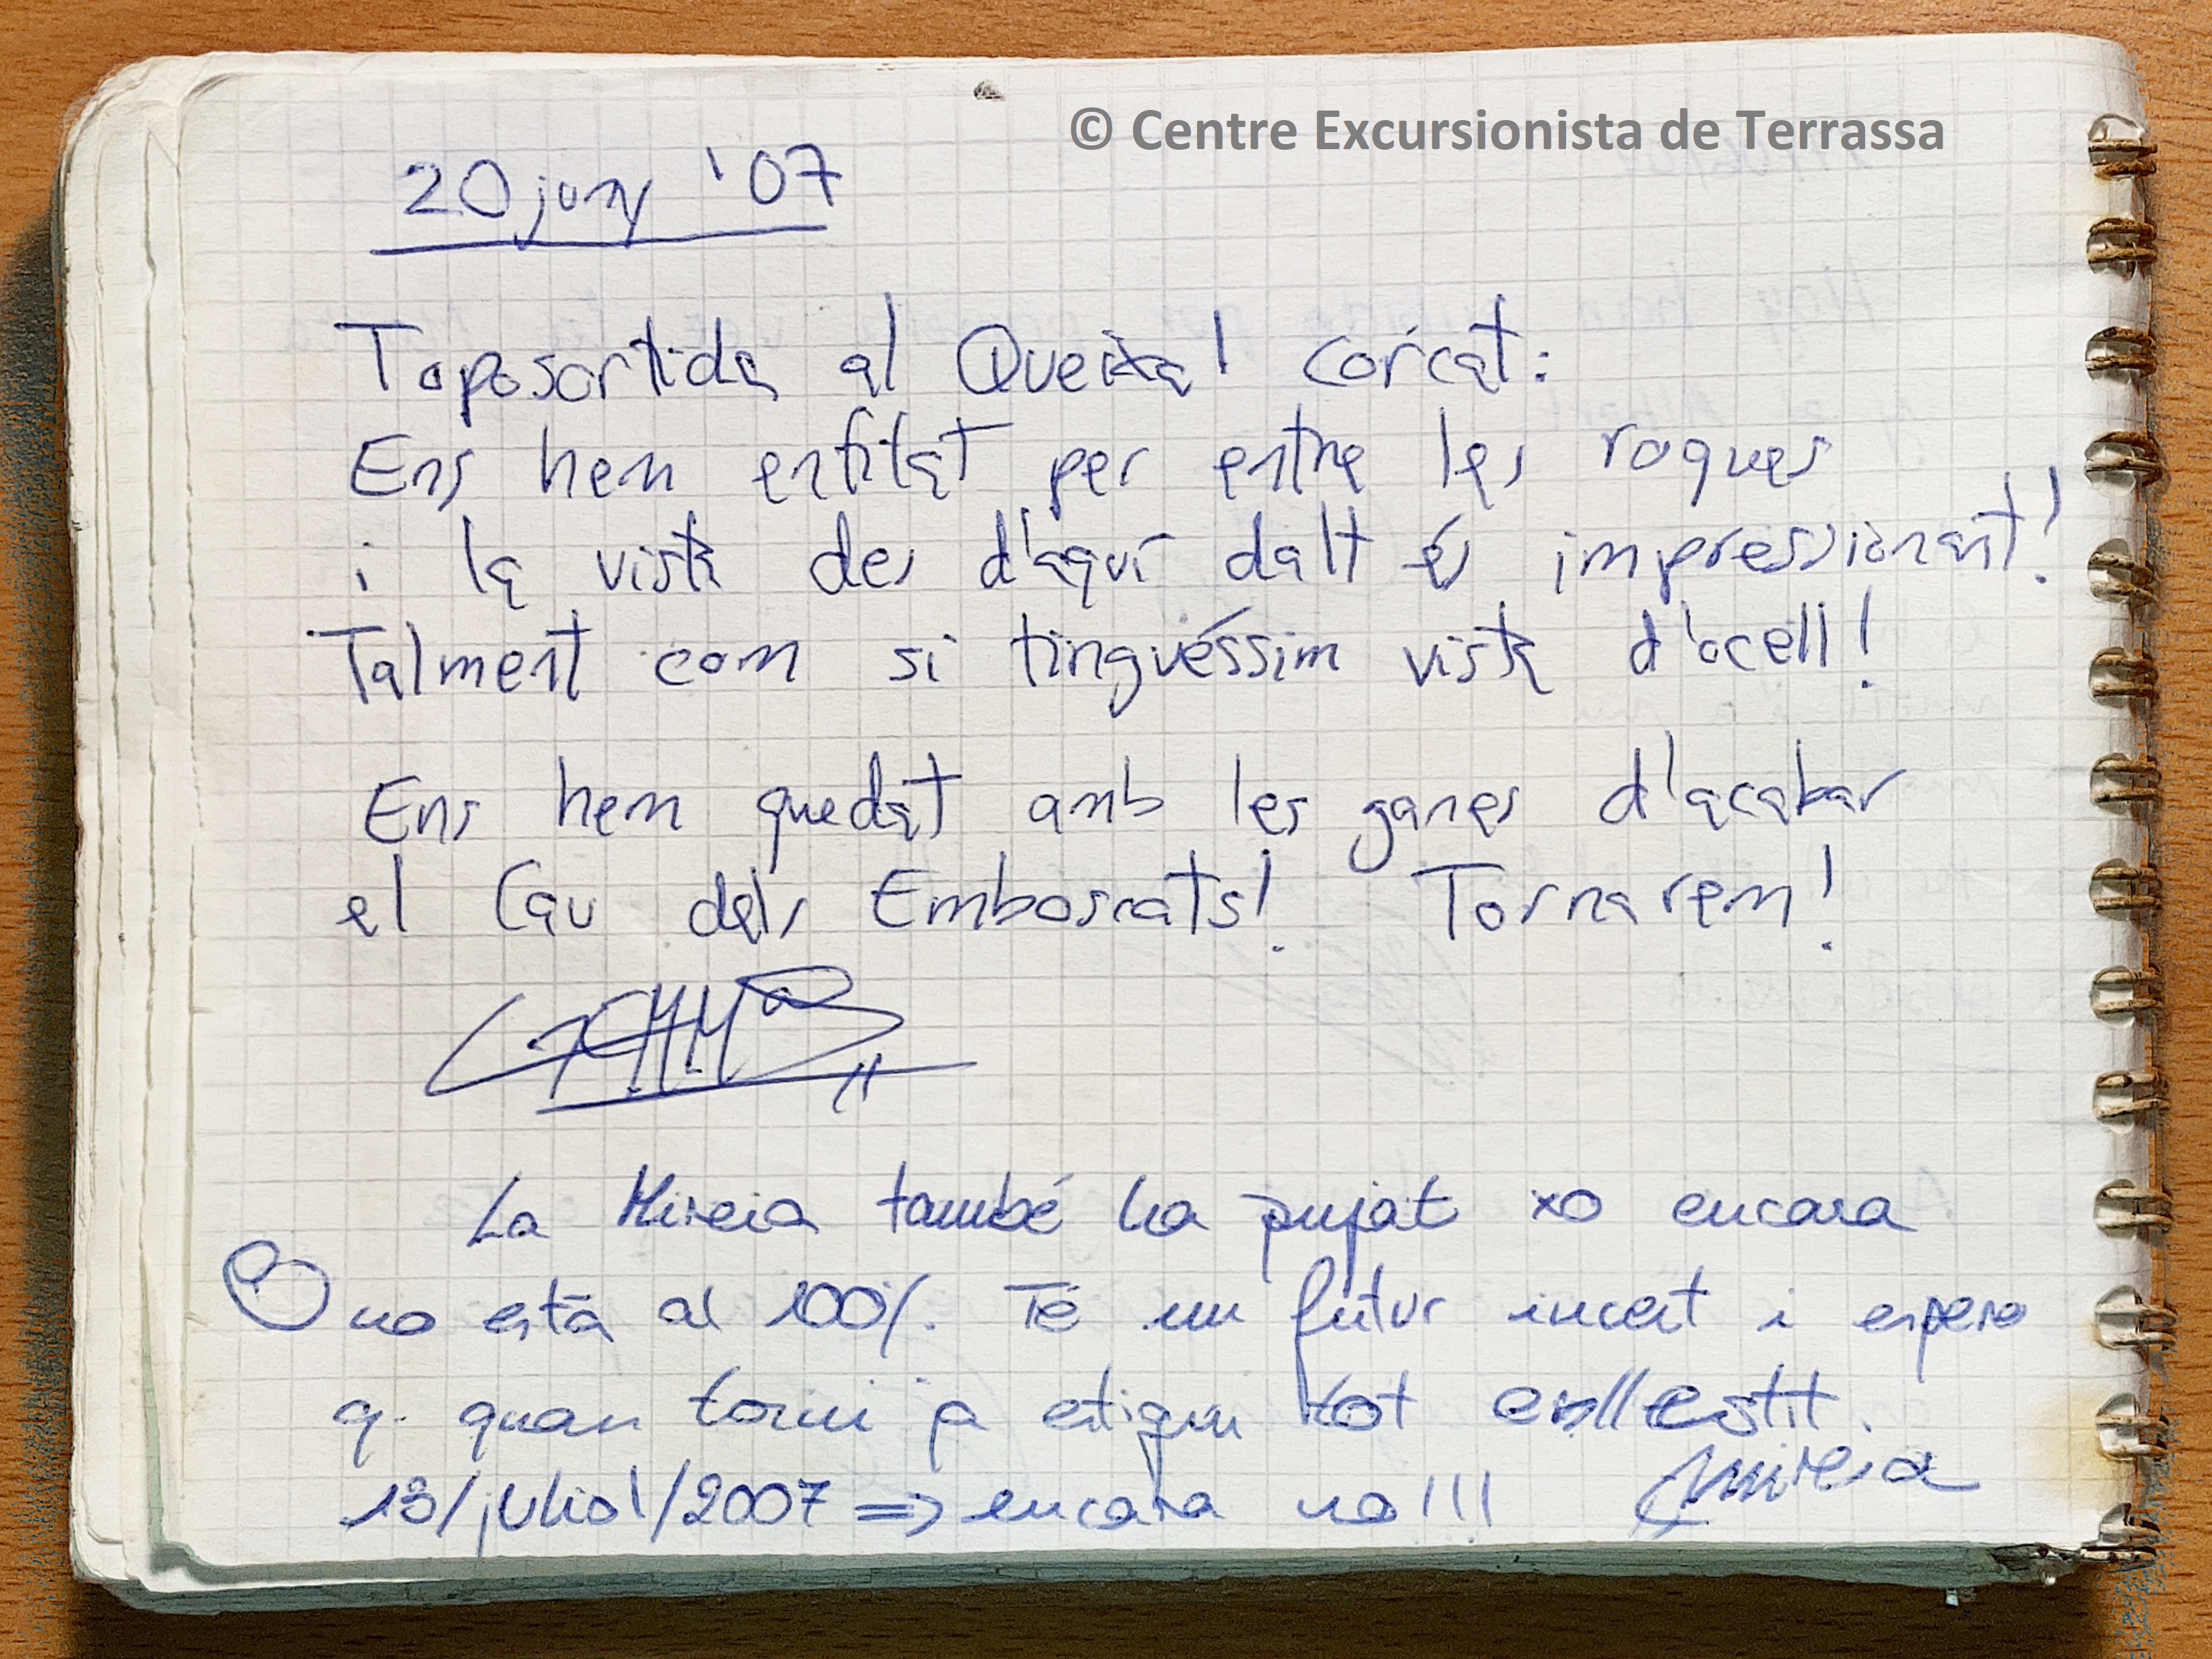 © Centre Excursionista de Terrassa
20 juny '07
Toposortida al Queixal corcat:
Ens hem enfilat per entre les roques
i la vista des d'aquí dalt és impressionant!
Talment com si tinguéssim vista d'ocell!
Ens hem quedat amb les ganes d'acabar
el Cau dels Emboscats! Tornarem!
La Mireia també ha pujat xo encara
no està al 100%. Té un futur incert i espero
q. quan torni ja estigui tot enllestit.
13/juliol/2007 => encara no!!! Mireia